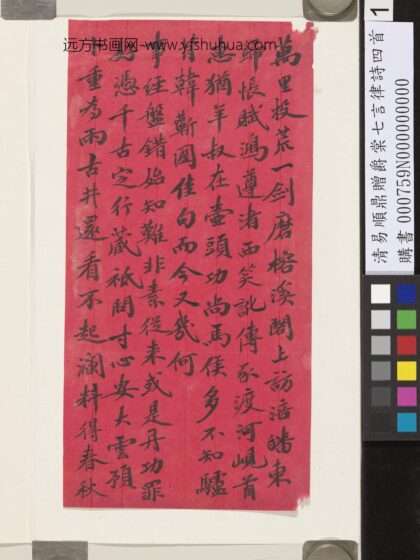 远方书画网-www.yfshuhua.com
萬里投荒一劍磨榕溪閣上訪涪皤東
歸悵賦鴻遵渚西笑訛傳豕渡河峴首
悲猶羊叔在壺頭功尚馬侯多不知驢
背韓蘄國佳句而今又幾何
事經盤錯始知難非素從来或是丹功罪
寫憑千古定行藏祇問寸心安大雲預
重為雨古井還看不起瀾料得春秋
1
清易順鼎贈爵棠七言律詩四首
購書 000759N000000000